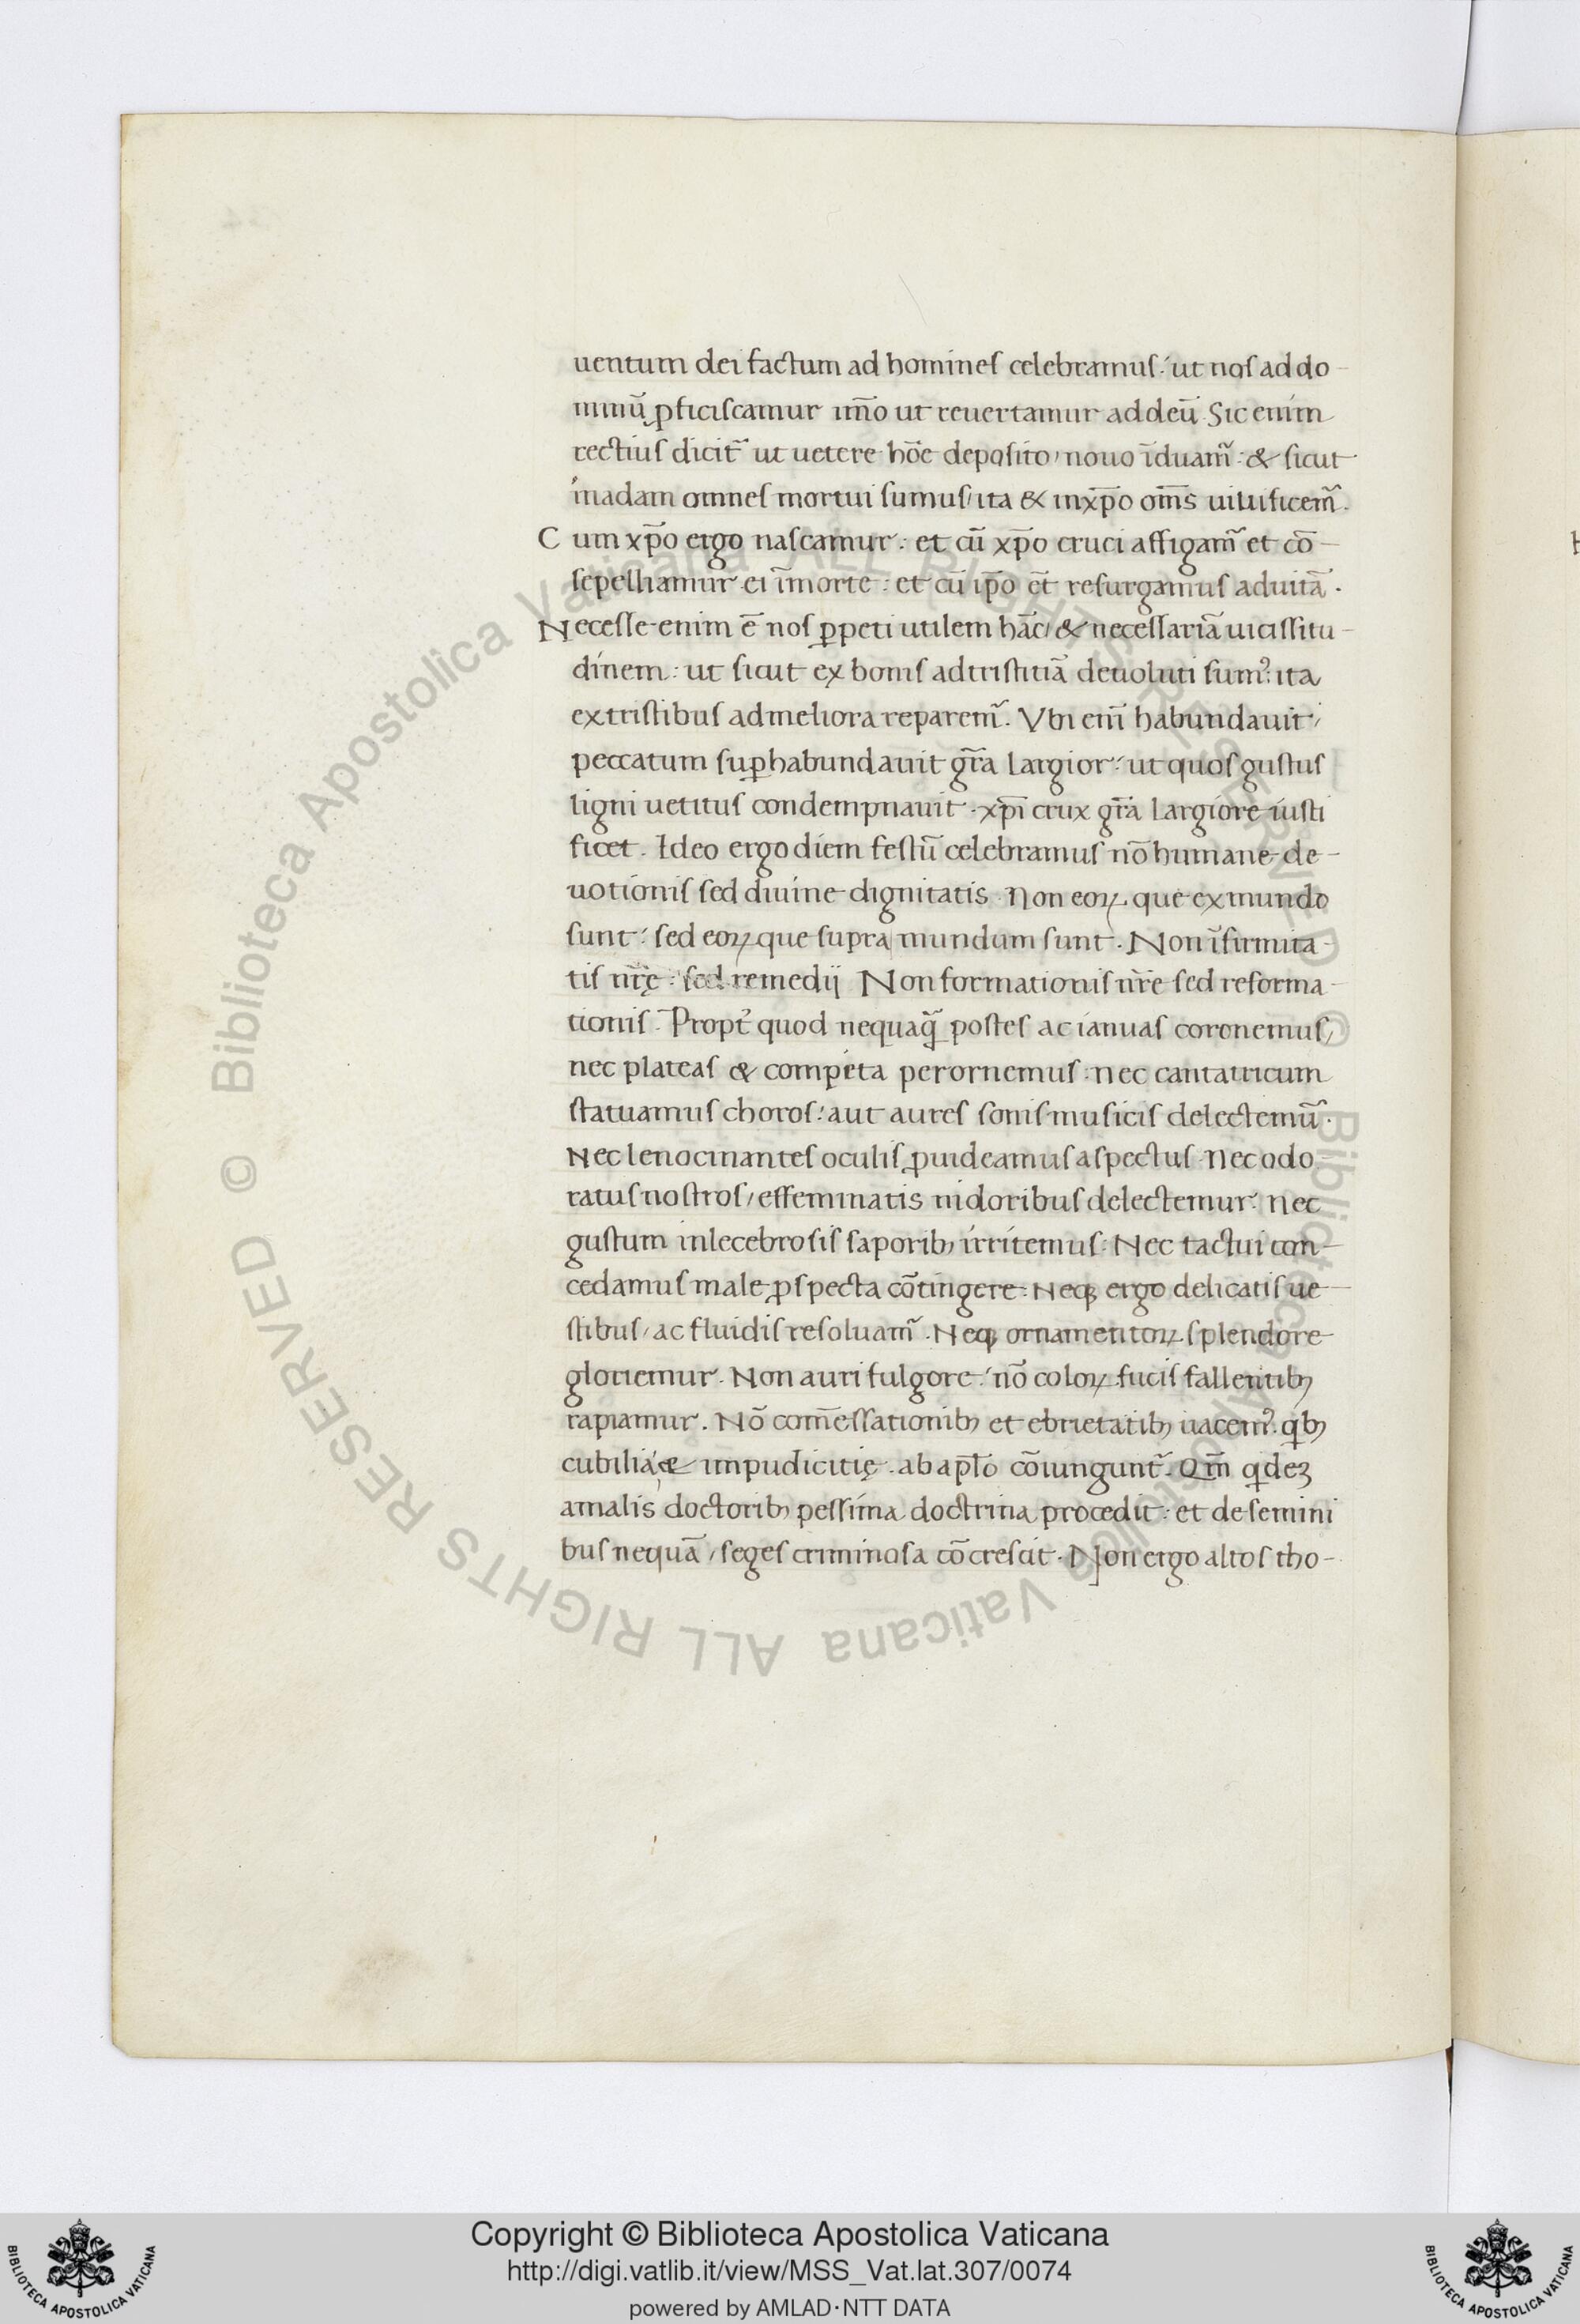 uentum dei factum ad homines celebramus: ut nos ad do-
minū ꝓficiscamur im̄o ut reuertamur ad deū. Sic enim
rectius dicit᷑ ut uetere hōē deposito, nouo īduam᷑: & sicut
in adam omnes mortui sumus, ita & in xp̄o om̄s uiuificem᷑.
Cum xp̄o ergo nascamur: et cū xp̄o cruci affigam᷑ et cō-
sepeliamur ei ī morte: et cū ip̄o et̄ resurgamus ad uitā.
Necesse enim ē nos ꝑpeti utilem hāc, & necessariā uicissitu-
dinem: ut sicut ex bonis ad tristitiā deuoluti sumꝰ: ita
ex tristibus ad meliora reparem᷑. Vbi enī habundauit
peccatum suꝑhabundauit gr̄a largior: ut quos gustus
ligni uetitus condempnauit. xp̄i crux gr̄a largiore iusti
ficet. Ideo ergo diem festū celebramus nō humane de-
uotionis sed diuine dignitatis. Non eoꝝ que ex mundo
sunt: sed eoꝝ que supra mundum sunt. Non īfirmita-
tis nr̄ę: sed remedij Non formationis nr̄e sed reforma-
tionis. Propt̄ quod nequaq̄ postes ac ianuas coronemus,
nec plateas & compita perornemus: nec cantatricum
statuamus choros: aut aures sonis musicis delectem᷑.
Nec lenocinantes oculis ꝓuideamus aspectus. Nec odo-
ratus nostros, effeminatis nidoribus delectemur. Nec
gustum inlecebrosis saporibꝫ irritemus: Nec tactui con-
cedamus male ꝓspecta cōtingere. Neqꝫ ergo delicatis ue-
stibus, ac fluidis resoluam᷑. Neqꝫ ornamentoꝝ splendore
gloriemur. Non auri fulgore: nō coloꝝ fucis fallentibꝫ
rapiamur. Nō com̄essationibꝫ et ebrietatibꝫ uacemꝰ. qͥbꝫ
cubilia & impudicitię. ab ap̄lo cōiungunt᷑. Qm̄ qͥdeꝫ
a malis doctoribꝫ pessima doctrina procedit: et de semini
bus nequā, seges criminosa cōcrescit. Non ergo altos tho-
© Biblioteca Apostolica Vaticana ALL RIGHTS RESERVED © Biblioteca Apostolica Vaticana ALL RIGHTS RESERVED
Copyright © Biblioteca Apostolica Vaticana
http://digi.vatlib.it/view/MSS_Vat.lat.307/0074
powered by AMLAD·NTT DATA
BIBLIOTECA APOSTOLICA VATICANA
BIBLIOTECA APOSTOLICA VATICANA